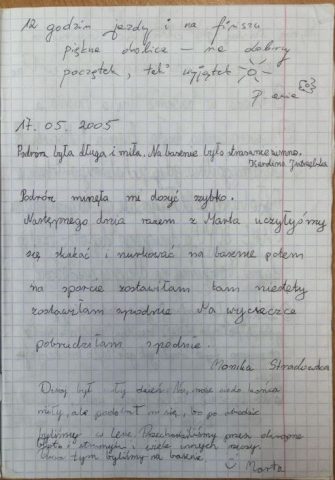 12 godzin jazdy i na finiszu
piękne okolice – na dobry
początek, tak wyjątek
P. ania
17.05.2005
Podróż była długa i miła. Na basenie było strasznie zimno.
Karolina
Podróż minęła mi dosyć szybko.
Następnego dnia razem z Martą uczyłyśmy
się skakać i nurkować na basenie potem
na sporcie zostawiłam tam niestety
zostawiłam spodnie. Na wycieczce
pobrudziłam spodnie.
Monika Stradowska
Dzisiaj był dzień. No, może
miły, ale podobał mi się, bo po obiedzie
byliśmy w lesie. Przechodziliśmy przez
błoto i strumyk i wiele innych rzeczy.
tym byliśmy na basenie
Marta